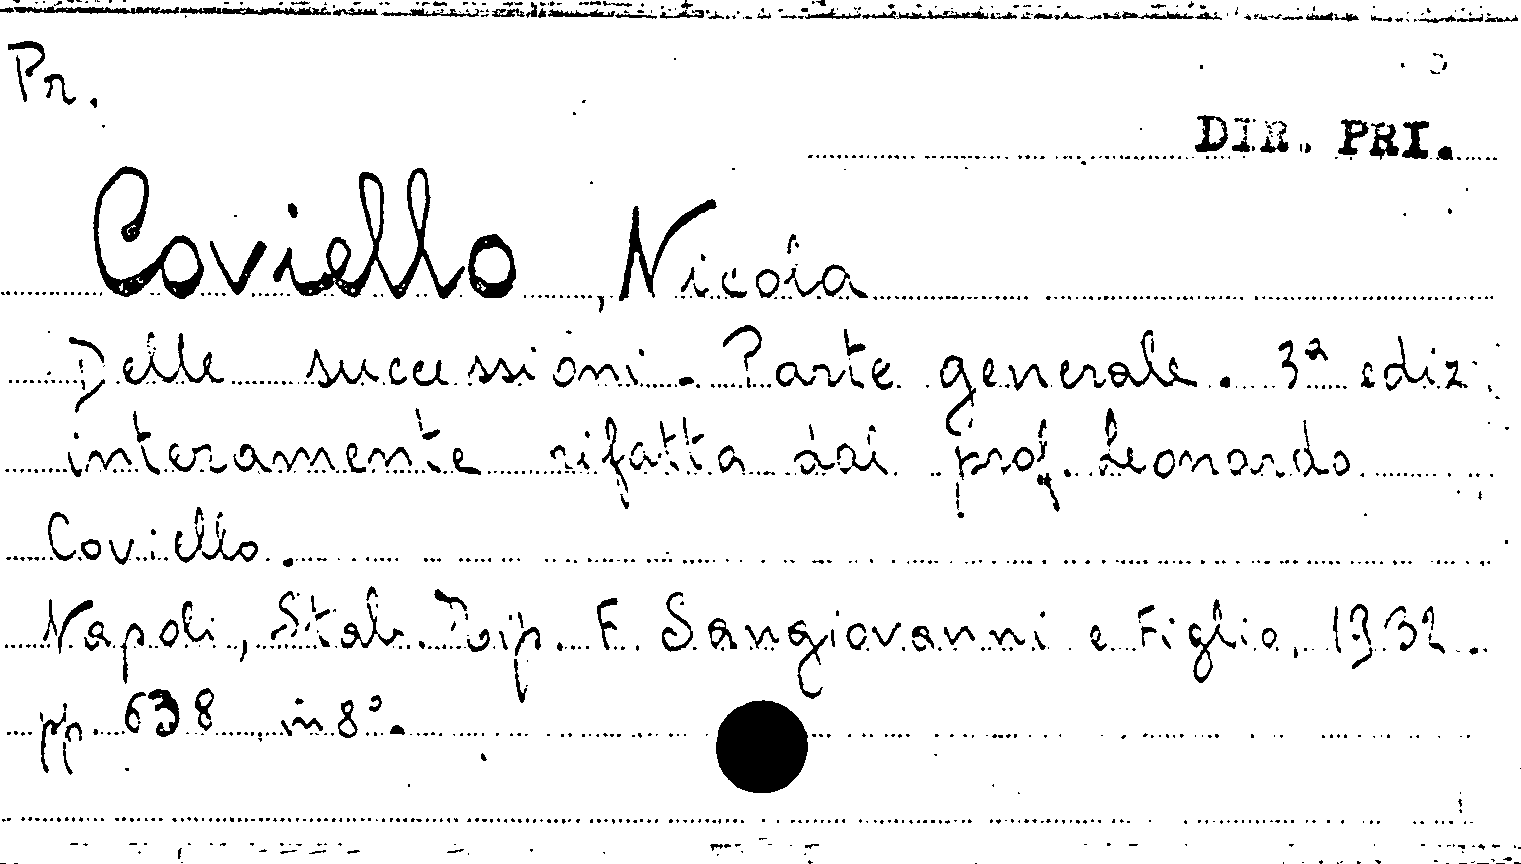 Pr.
DIR. PRI.
Coviello, Nicola
Delle successioni. Parte generale. 3ª ediz.
interamente rifatta dal prof. Leonardo
Coviello.
Napoli, Stab. Tip. F. Sangiovanni e Figlio, 1932.
pp. 638 in 8°.